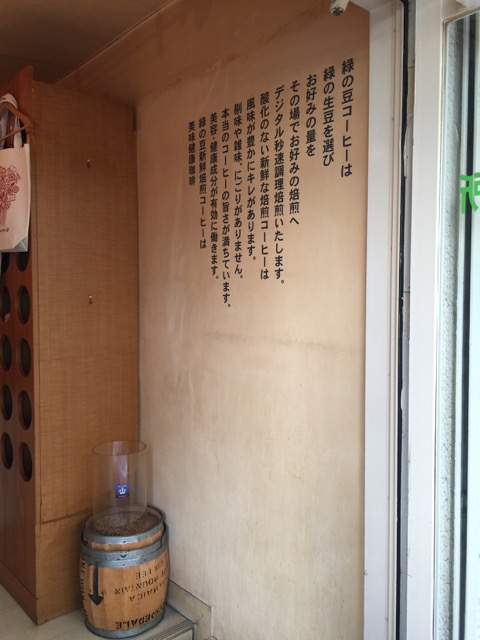 緑の豆コーヒーは
緑の生豆を選び
お好みの量を
その場でお好みの焙煎へ
デジタル秒速調理焙煎いたします。
酸化のない新鮮な焙煎コーヒーは
風味が豊かにキレがあります。
刺味や雑味、にごりがありません。
本当のコーヒーの旨さが満ちています。
美容・健康成分が有効に働きます。
緑の豆新鮮焙煎コーヒーは
美味健康珈琲
JAMAICA
BLUE MOUNTAIN
COFFEE